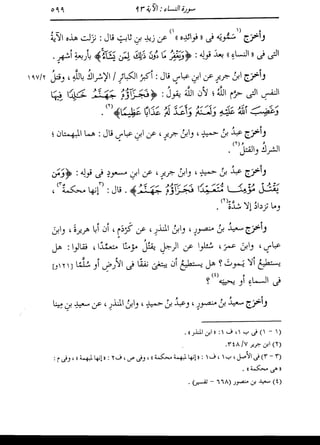 سورة النساء : الآية ٩٣ ٥٩٩
وأخرج سَمُّويَه فى «فوائده» عن زيدِ بنِ ثابتٍ قال : نزَلت هذه الآيةُ
التى فى «النساءِ» بعدَ قولِه : ﴿وَيَغْفِرُ مَا دُونَ ذَٰلِكَ لِمَن يَشَآءُ﴾ بأربعةِ أشهرٍ .
وأخرج ابنُ جريرٍ عن ابنِ عباسٍ قال : أكبرُ الكبائرِ الإشراكُ باللهِ ، وقتلُ ١٩٧/٢
النفسِ التى حرَّم اللهُ ؛ لأن اللهَ يقولُ : ﴿فَجَزَآؤُهُۥ جَهَنَّمُ خَٰلِدًا فِيهَا
وَغَضِبَ ٱللَّهُ عَلَيْهِ وَلَعَنَهُۥ وَأَعَدَّ لَهُۥ عَذَابًا عَظِيمًا﴾ (٢) .
وأخرج عبدُ بنُ حميدٍ ، وابنُ جريرٍ ، عن ابنِ عباسٍ قال : هما المبهمتان ؛
الشركُ والقتلُ (٢) .
وأخرج عبدُ بنُ حميدٍ ، وابنُ جريرٍ ، عن ابنِ مسعودٍ فى قولِه : ﴿وَمَن
يَقْتُلْ مُؤْمِنًا مُّتَعَمِّدًا فَجَزَآؤُهُۥ جَهَنَّمُ﴾ . قال : (٣) إنها لمحكمةٌ (٣) ،
وما تزدادُ إلا شدةً (٢) .
وأخرج سعيدُ بنُ منصورٍ ، وابنُ المنذرِ ، عن كَرْدَمٍ ، أن أبا هريرةَ ، وابنَ
عباسٍ ، وابنَ عمرَ ، سُئلوا عن الرجلِ يقتُلُ مؤمنًا متعمدًا ، فقالوا : هل
يستطيعُ ألَّا يموتَ ؟ هل يستطيعُ أن يبتغىَ نفقًا فى الأرضِ أو سُلَّمًا [١٢١و]
فى السماءِ أو يحييَه (٤) ؟
وأخرج سعيدُ بنُ منصورٍ ، وعبدُ بنُ حميدٍ ، وابنُ المنذرِ ، عن سعيدِ بنِ مينا
(١ - ١) فى ب ١ ، ف ١ : «ابن المنذر» .
(٢) ابن جرير ٧/ ٣٤٨ .
(٣ - ٣) فى الأصل ، ب ١ ، ف ١ : «إنها لمبهمة محكمة» ، وفى ص ، ف ٢ : «إنها لمبهمة» ، وفى م :
«هى محكمة» .
(٤) سعيد بن منصور (٦٦٨ - تفسير) .